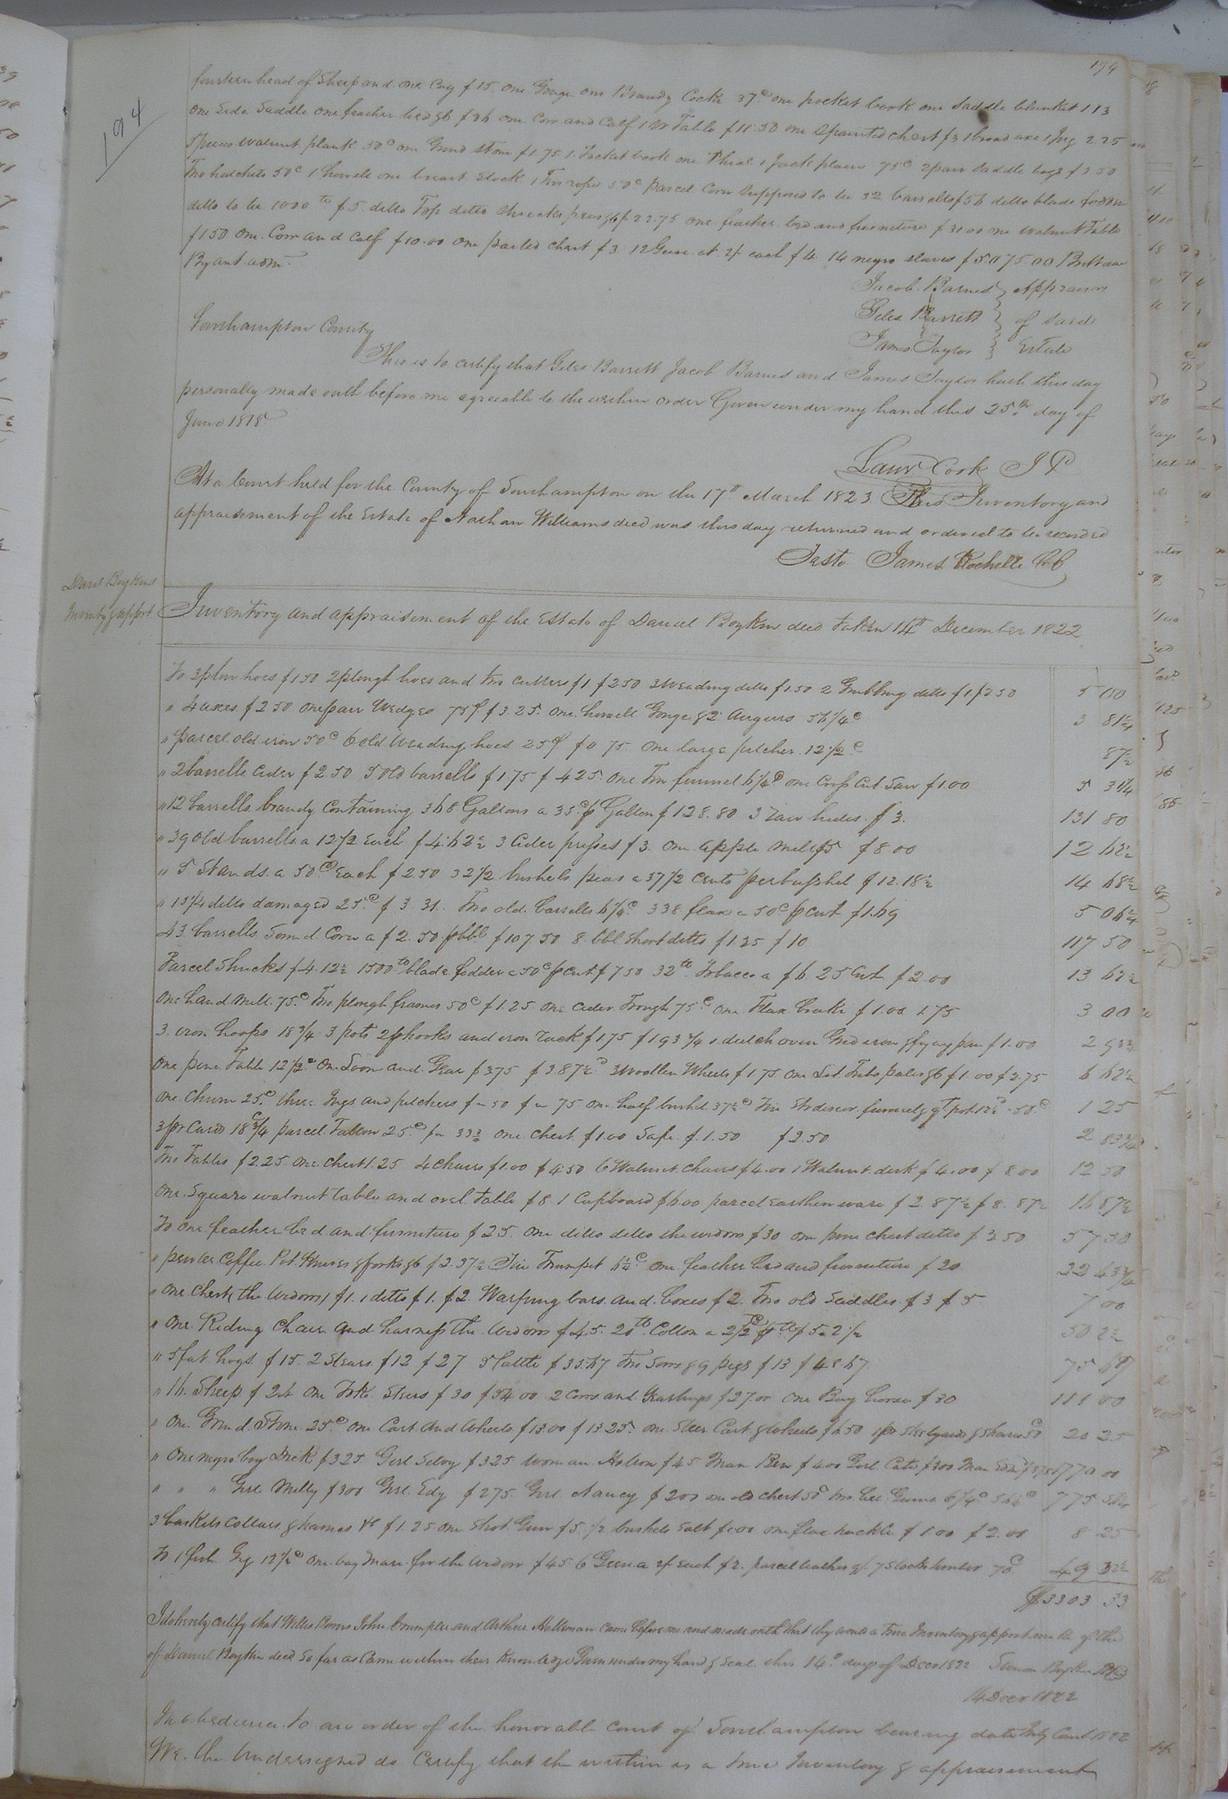 194
194
fourteen head of Sheep and one Ewe £15. one Gouge one Brandy Cock 37c one pocket book one Saddle blanket 113
one Side Saddle one feather bed &c £36 one Cow and Calf 1 Table £11.50 one painted chest £3 1 broad axe 1 Jug 2.25
pieces walnut plank 50c one Grind Stone £1.75 1 Pocket book one 1 Jack plane 75c 2 pair Saddle bags £3.50
Two hatchets 50c 1 howell one breast Stock 1 50c parcel Corn Supposed to be 32 barrells £56 ditto blade fodder
ditto to be 1000 lb £5. ditto Top ditto Shucks peas &c £22.75 one feather bed and furniture £31.00 one walnut Table
£1.50 one Cow and Calf £10.00 one painted chest £3 12 Geese at 2/ each £4 14 negro slaves £5075.00 Brittain
Bryant adm.
Jacob Barnes } Appraisors
Giles Barrett } of said
James Taylor } Estate
Southampton County
This is to certify that Giles Barrett Jacob Barnes and James Taylor hath this day
personally made oath before me agreeable to the within order Given under my hand this 25th day of
June 1818
Laur Cook J P
At a Court held for the County of Southampton on the 17th March 1823 This Inventory and
appraisement of the Estate of Nathan Williams decd was this day returned and ordered to be recorded
Teste James Rochelle
Danl Boykins
Inventy & appmt
Inventory and appraisement of the Estate of Daniel Boykin decd taken 14th December 1822
To 3 plow hoes £1.50 2 plough hoes and two cutters £1 £2.50 3 Weeding ditto £1.50 2 Grubbing ditto £1 £2.50 5 00
" 4 axes £2.50 one pair Wedges 75c £3.25 one howell Gouge & 2 Augurs 56 1/4c 3 81 1/4
" parcel old iron 50c 6 old Weeding hoes 25c £0.75 one large pitcher 12 1/2c 87 1/2
" 2 barrells Cider £2.50 5 old barrells £1.75 £4.25 one Tin funnel 6 1/4c one Cross Cut Saw £1.00 5 31 1/4
" 12 barrells brandy Containing 368 Gallons a 35c p Gallon £128.80 3 raw hides £3. 131 80
" 39 old barrells a 12 1/2 Each £4.62 1/2 3 Cider presses £3. one apple mill £5 £8.00 12 62 1/2
" 5 Stands a 50c Each £2.50 32 1/2 bushels peas a 37 1/2 cents per bushel £12.18 1/2 14 68 1/2
" 13 1/4 ditto damaged 25c £3.31. Two old barrells 6 1/4c 338 flax a 50c p cwt £1.69 5 06 1/4
43 barrells Sound Corn a £2.50 p bbl £107.50 8 bbl Short ditto £1.25 £10 117 50
Parcel Shucks £4.12 1/2 1500 lb blade fodder a 50c p cwt £7.50 32 lb Tobacco a £6.25 Cwt £2.00 13 62 1/2
One hand Mill 75c Two plough frames 50c £1.25 one Cider Trough 75c one Flax brake £1.00 1.75 3 00
3 iron hoops 18 3/4 3 pots 2 pothooks and iron rack £1.75 £1.93 3/4 1 dutch oven Grid iron & frying pan £1.00 2 93 3/4
One pine Table 12 1/2c one Loom and Gear £3.75 £3.87 1/2 3 Woollen Wheels £1.75 one Lot Tubs pails &c £1.00 £2.75 6 62 1/2
One Churn 25c three Jugs and pitchers £-50 £-75 one half bushel 37 1/2c Tin funnel & 12 1/2 50c 1 25
3 pr Cards 18 3/4 parcel Tallow 25c one Chest £1.00 Safe £1.50 £2.50 2 83 3/4
Two Tables £2.25 one Chest 1.25 4 chairs £1.00 £4.50 6 Walnut chairs £4.00 1 Walnut desk £4.00 £8.00 12 50
One Square walnut table and oval table £8. 1 Cupboard £6.00 parcel earthen ware £2.87 1/2 £8.87 1/2 16 87 1/2
To one feather bed and furniture £25. one ditto ditto the widow £30 one pine chest ditto £2.50 57 50
" pewter Coffee Pot Knives & forks &c £2.37 1/2 Tin Trumpet 6 1/4c one feather bed and furniture £20 22 43 3/4
" one Chest the Widow £1. 1 ditto £1. £2. Warping bars and boxes £2. Two old Saddles £3 £5 7 00
" one Riding Chair and harness the Widow £45. 20 lb Cotton a 2 1/2 £5.2 1/2 50 2 1/2
" 5 fat hogs £15. 2 Stears £12 £27 5 Cattle £35.67 Two Sows & 9 pigs £13 £48.67 75 67
" 16 Sheep £24 one Yoke Steers £30 £54.00 2 Cows and Yearlings £27.00 one Bay horse £30 111 00
" one Grind Stone 25c one Cart and Wheels £13.00 £13.25 one Steer Cart & Wheels £6.50 1 pr Steelyards & shears 50c 20 25
" One negro boy Dick £325 Girl Silvy £325 Woman £45 Man Ben £400 Girl Cate £300 Man £375 1770 00
" " " Girl Milly £300 Girl Edy £275 Girl Nancy £200 an old chest 50c two bee Gums 6 1/4c 56 1/4c 775 56 1/4
3 baskets Collars & hames &c £1.25 one Shot Gun £5. 1/2 bushels Salt £1.00 one flax hackle £1.00 £2.00 8 25
To 1 Jug 12 1/2c one bay Mare for the Widow £45 6 Geese a 2/ Each £2. parcel leather 7 75c 49 32 1/2
$3303 33
I do hereby certify that Willis Bowns John Crumpler and Arthur Holleman Came before me and made oath that they a True Inventory & appraisement of the
of Daniel Boykin decd So far as Came within their Knowledge Given under my hand & Seal this 14th day of Decr 1822 Boykin
14 Decr 1822
In obedience to an order of the honorable Court of Southampton bearing date Court 1822
We the Undersigned do Certify that the within is a true Inventory & appraisement